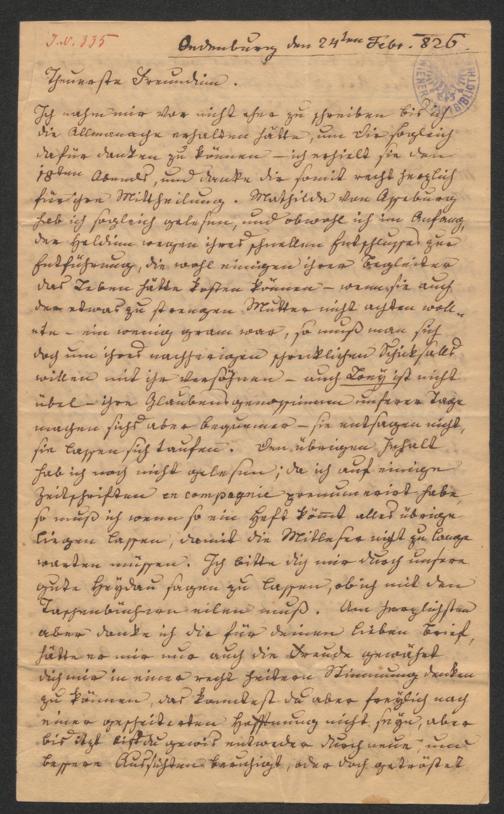 J.N. 335
Oedenburg den 24sten Febr. 826.
Theuerste Freundinn.
Ich nahm mir vor nicht eher zu schreiben bis ich
die Allmanache erhalten hätte, um Dir sogleich
dafür danken zu können – ich erhielt sie den
18ten Abends, und danke dir somit recht herzlich
für ihre Mittheilung. Mathilde von Asseburg
hab ich sogleich gelesen, und obwohl ich im Anfang,
der Heldinn wegen ihres schnellen Entschlusses zur
Entführung, die wohl einigen ihrer Begleiter
das Leben hätte kosten können – wenn sie auch
der etwas zu strengen Mutter nicht achten woll-
te – ein wenig gram war, so muß man sich
doch um ihres nachherigen schrecklichen Schicksalls
willen mit ihr versöhnen – auch Tony ist nicht
übel – ihre Glaubensgenossinnen unserer Tage
machen sichs aber bequemer – sie entsagen nicht,
sie lassen sich taufen. Den übrigen Inhalt
hab ich noch nicht gelesen; da ich auf einige
Zeitschriften en compagnie prenumerirt habe
so muß ich wenn so ein Heft kömmt alles übrige
liegen lassen, damit die Mitleser nicht zu lange
warten müssen. Ich bitte dich mir durch unsere
gute Heydau sagen zu lassen, ob ich mit den
Taschenbüchern eilen muß. Am herzlichsten
aber danke ich dir für deinen lieben Brief,
hätte er mir nur auch die Freude gewährt
dich mir in einer recht heitern Stimmung denken
zu können, das konntest du aber freylich nach
einer gescheiterten Hoffnung nicht seyn, aber
bis itzt bist du gewis entweder durch neue, und
bessere Aussichten beruhigt, oder doch getröstet